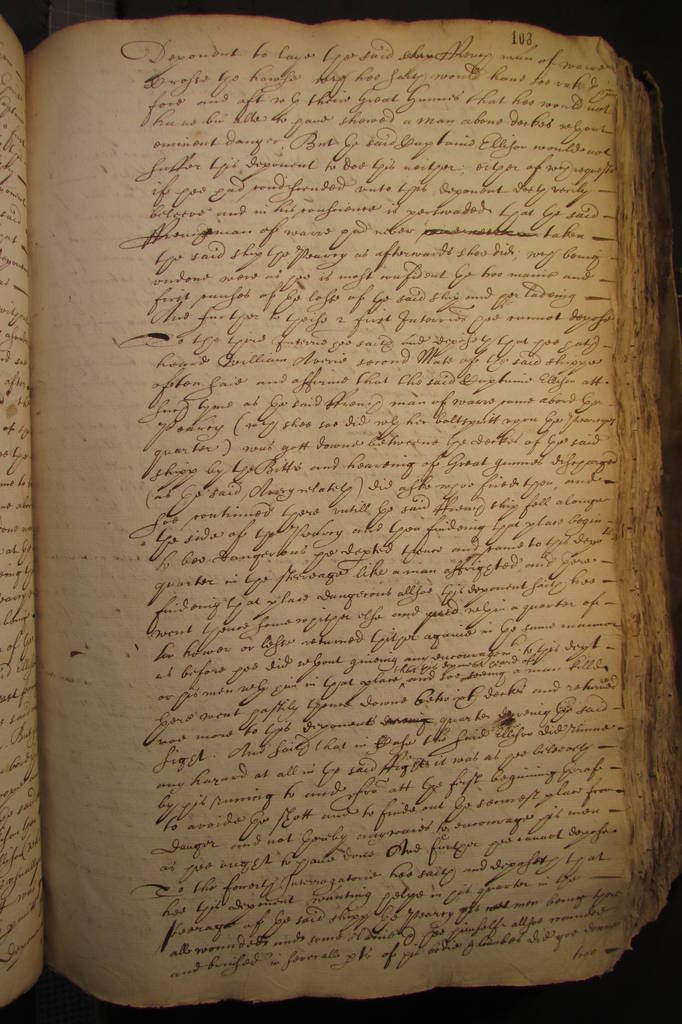 103
Deponent to laye the said ship Peary man of warre
Crosse the hawse
fore and aft with theire Great Gunnes that hee would not
have bin able to have shewed a man above deckes without
eminent danger, But the said Captaine Ellison would not
suffer this deponent to doe this neither, either of which requests
if hee had condiscended unto this deponent doth verily
beleeve and in his conscience is perswaded that the said
French man of warre had never taken
the said ship the Pearry as afterwards shee did, which being
undone were as hee is most confident the two maine and
first causes of the losse of the said ship and her ladeing
And further to these 2 first Interries hee cannot depose
To the third Interrie hee saith and deposeth that hee hath
heard William Averie second Mate of the said shippe
often saie and affirme that the said Captaine Ellison att
such tyme as the said French man of warre came abord the
Pearry (which shee soe did with her boltspritt upon the Pearryes
quarter) was gott downe betweene the deckes of the said
shipp by the Bitts and heareing of Great gunnes discharged
(as the said Avery related) did aske who fired them, and
soe continued there untill the said French ship fell alonge
the side of the Pearry and then findeing that place begin
to bee dangerous he departed thence and came to this depts
quarter in the steerage like a man affrighted and there
findeing that place dangerous allsoe this deponent saith hee
went thence some whither else and within a quarter of
an hower or lesse returned thither againe in the same manner
as before hee did without giveing any encouragement to this dept
or his men with him in that place, and soe seeing a man killed
there went hastily thence downe betwixt deckes and returned
noe more to this deponents quarter dureing the said
fight. And saith that in Case the said Ellison did runne
any hazard at all in the said Fight it was as hee beleeveth
by his runing to and fro att the first begining thereof
to avoide the shott and to finde out the securest place from
Danger and not thereby anywaies to encourage his men
as hee ought to have done And further hee cannot depose
To the fowerth Interrogatorie hee saith and deposeth that
hee this deponent wanting helpe in his quarter in the
steerage of the said shipp the Pearry his men being there
all wounded and some and hee himselfe allsoe wounded
and bruised in severall pts of his bodie & limbes did goe downe